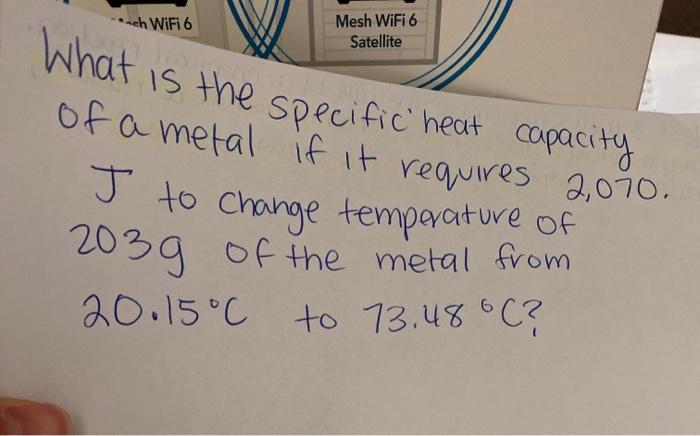 Mesh WiFi 6
Mesh WiFi 6
Satellite
What is the specific heat capacity
of a metal if it requires 2,070.
J to change temperature of
203g of the metal from
20.15°C to 73.48 °C?